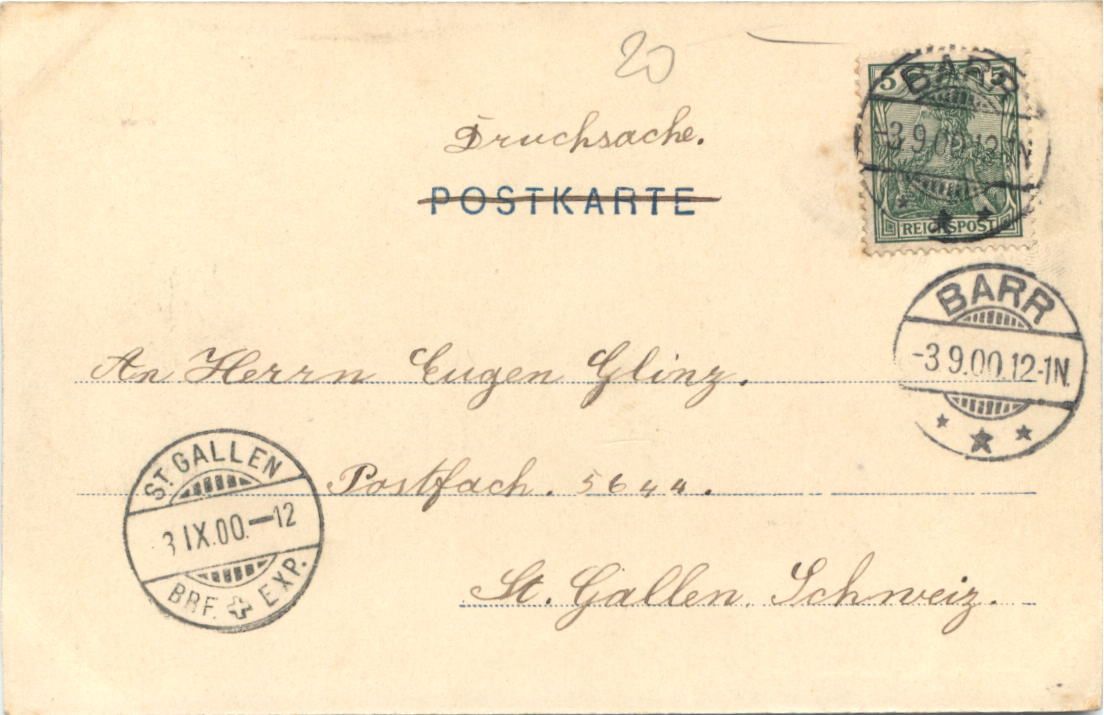 20
Drucksache.
POSTKARTE
5 5
BARR
-3 9.00.12-1N.
REICHSPOST
BARR
-3 9.00.12-1N.
An Herrn Eugen Glinz.
ST. GALLEN
3 IX.00.-12
BRF. EXP.
Postfach. 5644.
St. Gallen. Schweiz.